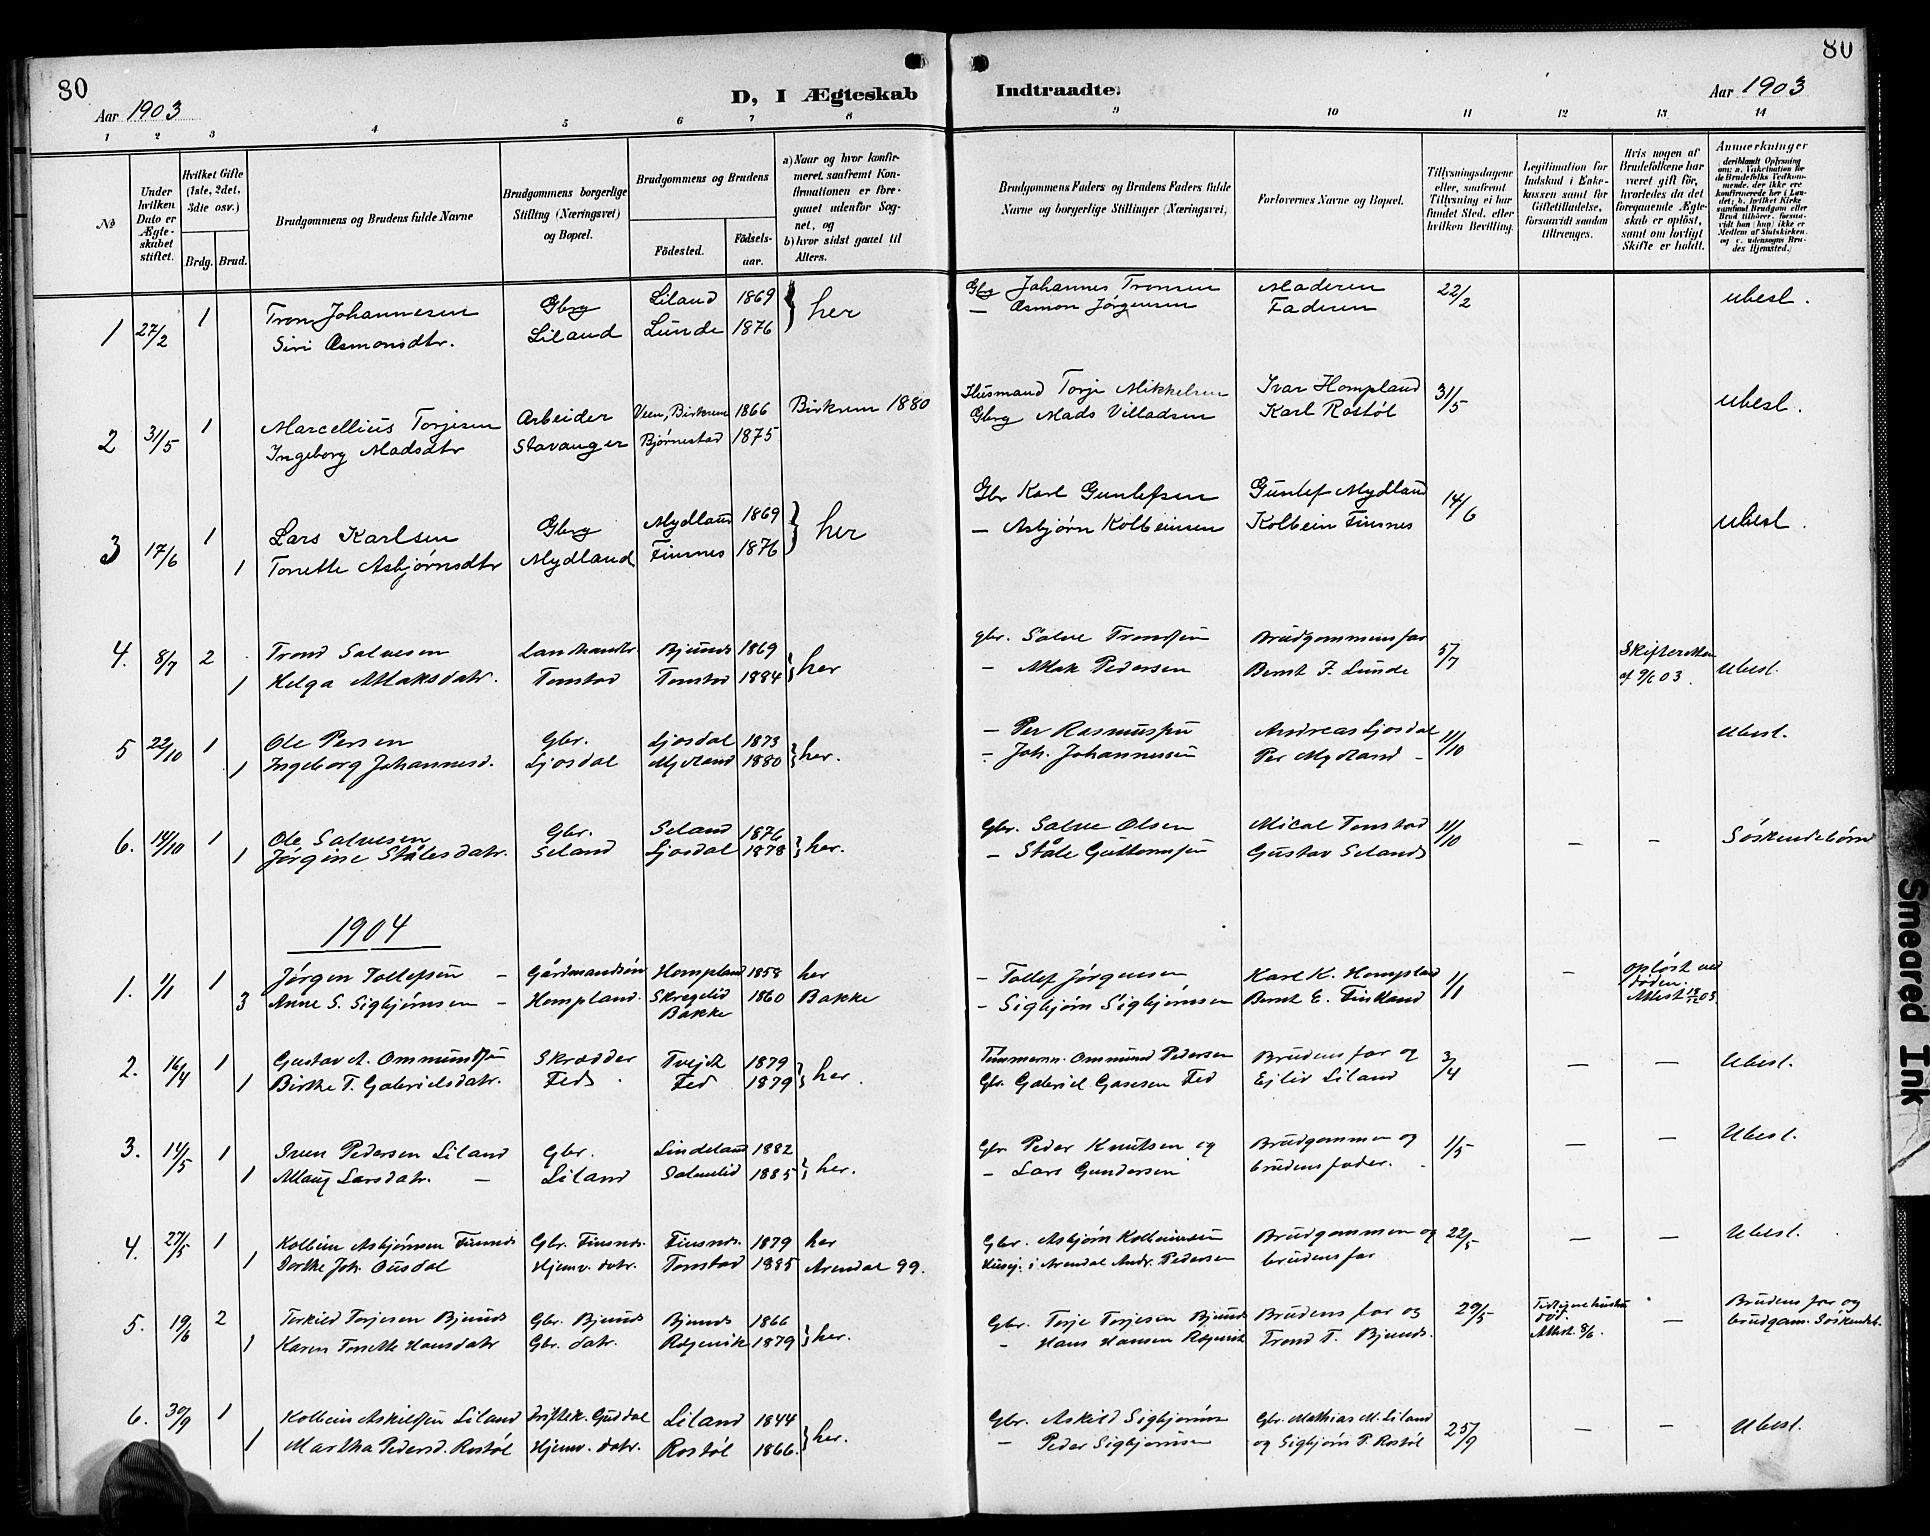 80
Aar 1903
D, I Ægteskab Indtraadte.
Aar 1903
80
1 2 3 4 5 6 7 8 9 10 11 12 13 14
No
Under hvilken Dato er Ægteskabet stiftet.
Hvilket Gifte (1ste, 2det, 3die osv.)
Brdg. Brud.
Brudgommens og Brudens fulde Navne
Brudgommens borgerlige Stilling (Næringsvei) og Bopæl.
Brudgommens og Brudens
Fødested.
Fødselsaar.
a) Naar og hvor konfirmeret, saafremt Konfirmationen er foregaaet udenfor Sognet, og
b) hvor sidst gaaet til Alters.
Brudgommens Faders og Brudens Faders fulde Navne og borgerlige Stillinger (Næringsvei)
Forlovernes Navne og Bopæl.
Tillysningsdagene eller, saafremt Tillysning ei har fundet Sted, efter hvilken Bevilling.
Legitimation for Indskud i Enkekassen samt for Giftetilladelse, forsaavidt saadan tiltrænges.
Hvis nogen af Brudefolkene har været gift før, hvorledes da det foregaaende Ægteskab er opløst, samt om lovligt Skifte er holdt.
Anmerkninger
1 27/2 1 Tron Johannesen Gbrg Liland 1869 } her Gbrg Johannes Tronsen Moderen 22/2 ubesl.
Siri Osmonsdtr. Liland Lunde 1876 — Osmon Jørgensen Faderen
2 31/5 1 Marcellius Torjesen Arbeider Veen, Birkrem 1866 Birkrem 1880 Husmand Torje Mikkelsen Ivar Hompland 31/5 ubesl.
Ingeborg Madsdtr Stavanger Bjørnestad 1875 Gbrg Mads Villadsen Karl Rostøl
3 17/6 1 Lars Karlsen Gbrg Mydland 1869 } her Gbr Karl Gunlefsen Gunlef Mydland 14/6 ubesl.
1 Tonette Asbjørnsdtr Mydland Finsnes 1876 — Asbjørn Kolbeinsen Kolbein Finsnes
4. 8/7 2 Trond Salvesen Landhandlr Bjunds 1869 } her gbr. Salve Trondsen Brudgommens far 5/7 Skifteretten ubesl.
1 Helga Atlaksdatr. Tonstad Tonstad 1884 — Atlak Pedersen Bernt F. Lunde af 9/6 03.
5 22/10 1 Ole Persen Gbr. Ljosdal 1873 } her. — Per Rasmussen Andreas Ljosdal 11/10 ubesl.
1 Ingeborg Johannesd. Ljosdal Mydland 1880 — Joh. Johannessen Per Mydland
6. 14/10 1 Ole Salvesen Gbr. Seland 1876 } her. Gbr. Salve Olsen Mical Tonstad 11/10 — — Søskendebørn
1 Jørgine Stålesdatr. Seland Ljosdal 1878 — Ståle Guttormsen Gustav Seland
1904
1. 1/1 1 Jørgen Tollefsen — Gårdmandsøn Hompland 1858 her — Tollef Jørgensen Karl K. Hompland 1/1 — opløst ved døden.
3 Anne S. Sigbjørnsen — Hompland. Skregelid Bakke 1860 Bakke — Sigbjørn Sigbjørnsen Bernt E. Fintland Attest 18/12 03
2. 16/4 1 Gustav A. Ommundsen Skrædder Tvejte 1879 } her. Tømmerm. Ommund Pedersen Brudens far og 3/4 — — Ubesl.
1 Birthe T. Gabrielsdatr. Feds. Fed 1879 Gbr. Gabriel Gasesen Fed Ejliv Liland
3. 14/5 1 Sven Pedersen Liland Gbr. Lindeland 1882 } her. Gbr Peder Knutsen og Brudgommen og 1/5 — — Ubesl.
1 Atlaug Larsdatr. — Liland Salmelid 1885 — Lars Gundersen brudens fader.
4. 27/5 1 Kolbein Asbjørnsen Finsnes Gbr. Finsnes. Finsnes. 1879 her Gbr. Asbjørn Kolbeinsen Brudgommen og 22/5 — — Ubesl.
1 Dorthe Joh. Ousdal Hjemv. datr. Tonstad 1885 Arendal 99. Husej. i Arendal Andr. Pedersen brudens far
5. 19/6 2 Terkild Torjesen Bjunds Gbr. Bjunds Bjunds 1866 } her. Gbr. Torje Torjesen Bjunds Brudens far og 29/5 Attest 8/6. — Brudens far og
1 Karen Tonette Hansdatr Gbr. datr. 1879 — Hans Hansen Trond T. Bjunds. brudgam. Søskendeb.
6. 30/9 1 Kolbein Askildsen Liland Liland 1844 } her. Gbr. Askild Sigbjørnsen Gbr. Mathias M. Liland 25/9 — — Ubesl.
1 Martha Pedersd. Rostøl Hjemv. datr. Rostøl 1866. — Peder Sigbjørnsen og Sigbjørn P. Rostøl
Smeared Ink